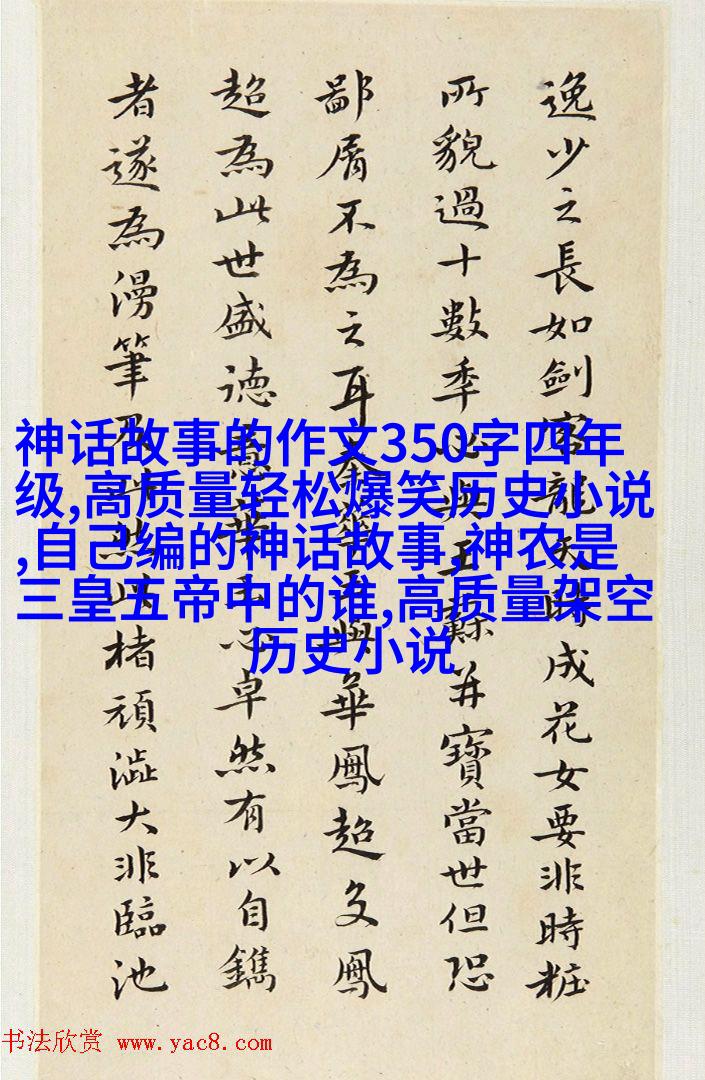 逸少之長如劍客龍成花女要非時粧
所貌過十數季必與王蘇并寶當世但恐
鄙屑不為之耳與華鳳超文鳳
超為此世盛德心卓然有以自鐫
者遂為漫筆然此楮頑澁大非臨池
神话故事的作文350字四年
级,高质量轻松爆笑历史小说
,自己编的神话故事,神农是
三皇五帝中的谁,高质量架空
历史小说
书法欣赏 www.yac8.com